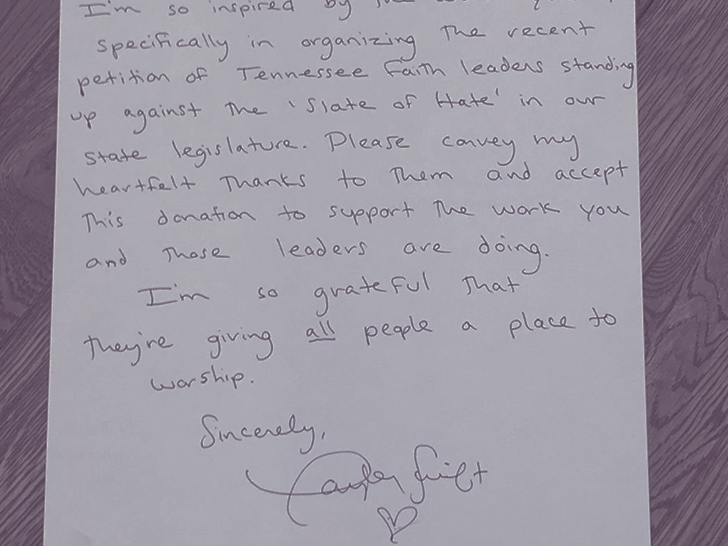 I'm so inspired by
specifically in organizing the recent
petition of Tennessee Faith leaders standing
up against the 'Slate of Hate' in our
state legislature. Please convey my
heartfelt thanks to them and accept
this donation to support the work you
and those leaders are doing.
I'm so grateful that
they're giving all people a place to
worship.
Sincerely,
Taylor Swift